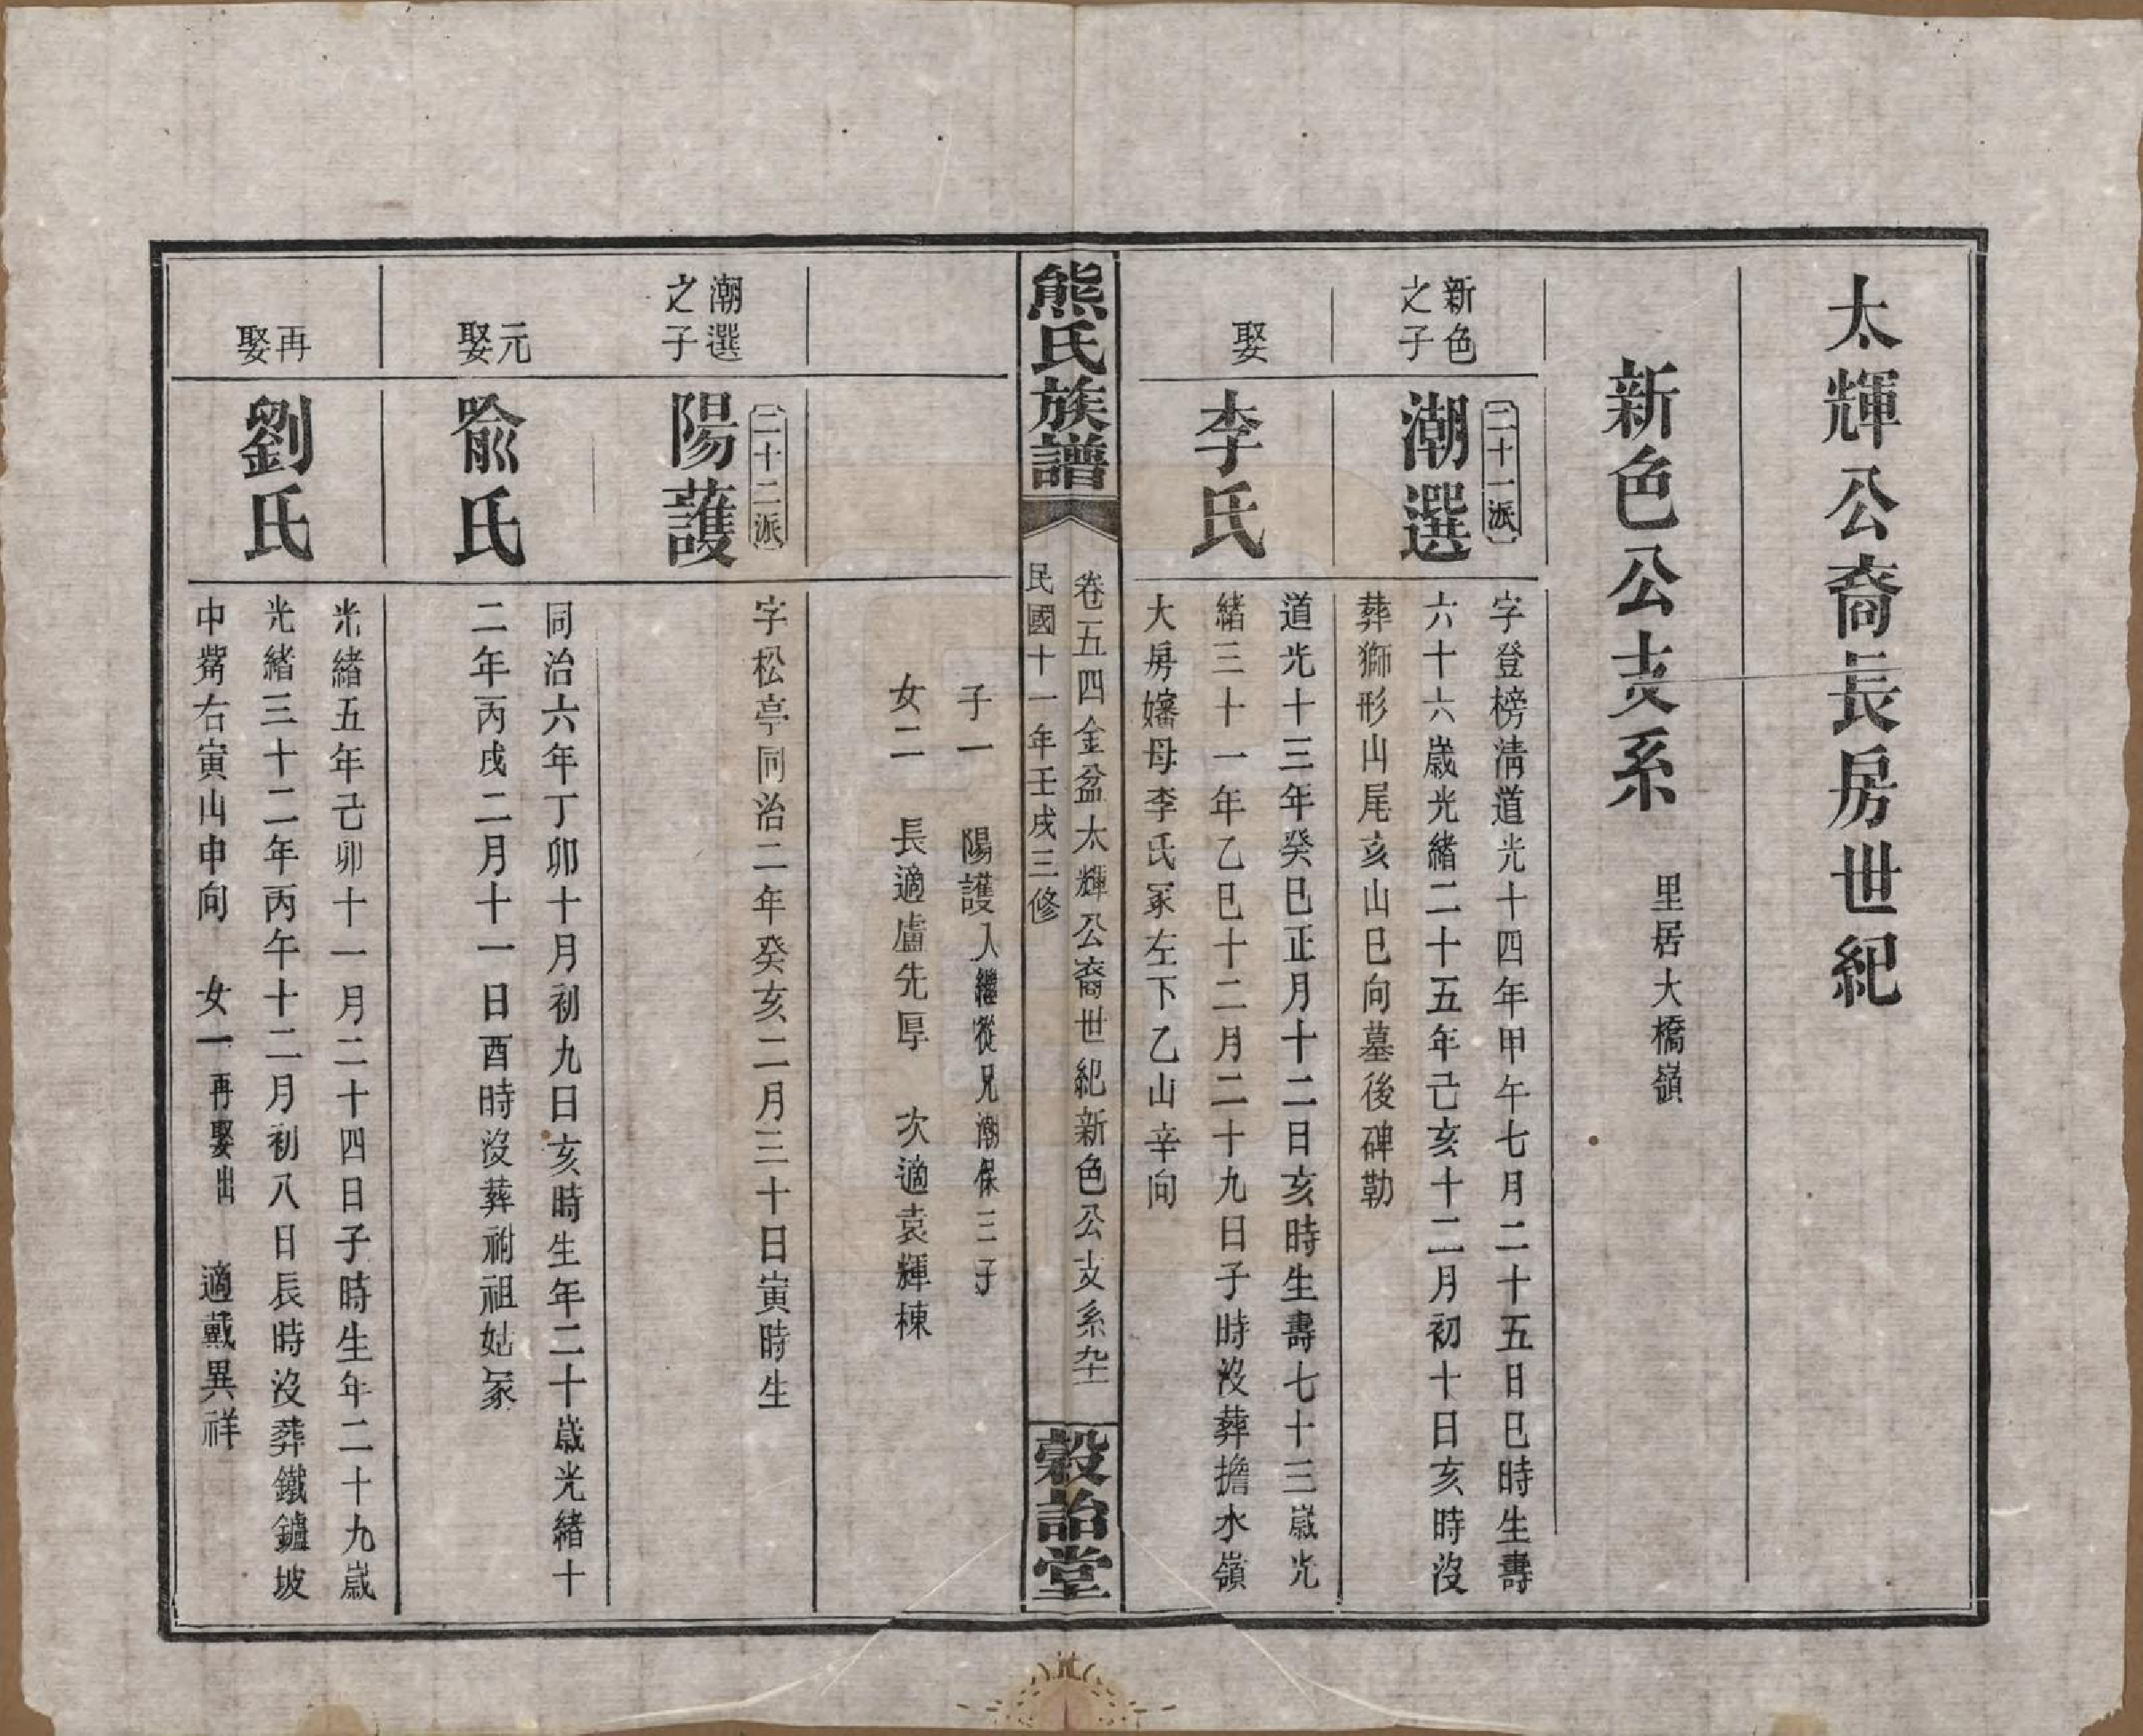 太輝公裔長房世紀
新色公支系
里居大橋嶺
新色
之子
二十一派
潮選
字登榜淸道光十四年甲午七月二十五日巳時生壽
六十六歲光緒二十五年己亥十二月初十日亥時沒
葬獅形山尾亥山巳向墓後碑勒
娶
李氏
道光十三年癸巳正月十二日亥時生壽七十三歲光
緒三十一年乙巳十二月二十九日子時沒葬擔水嶺
大房嬸母李氏冢左下乙山辛向
熊氏族譜
卷五四金盆太輝公裔世紀新色公支系
民國十一年壬戌三修
穀詒堂
子一 陽護入繼從兄潮保三子
女二 長適盧先厚 次適袁輝棟
潮選
之子
二十二派
陽護
字松亭同治二年癸亥二月三十日寅時生
元
娶
喩氏
同治六年丁卯十月初九日亥時生年二十歲光緒十
二年丙戌二月十一日酉時沒葬祔祖姑冢
再
娶
劉氏
光緒五年己卯十一月二十四日子時生年二十九歲
光緒三十二年丙午十二月初八日長時沒葬鐵鑪坡
中嘴右寅山申向 女一再娶出 適戴異祥